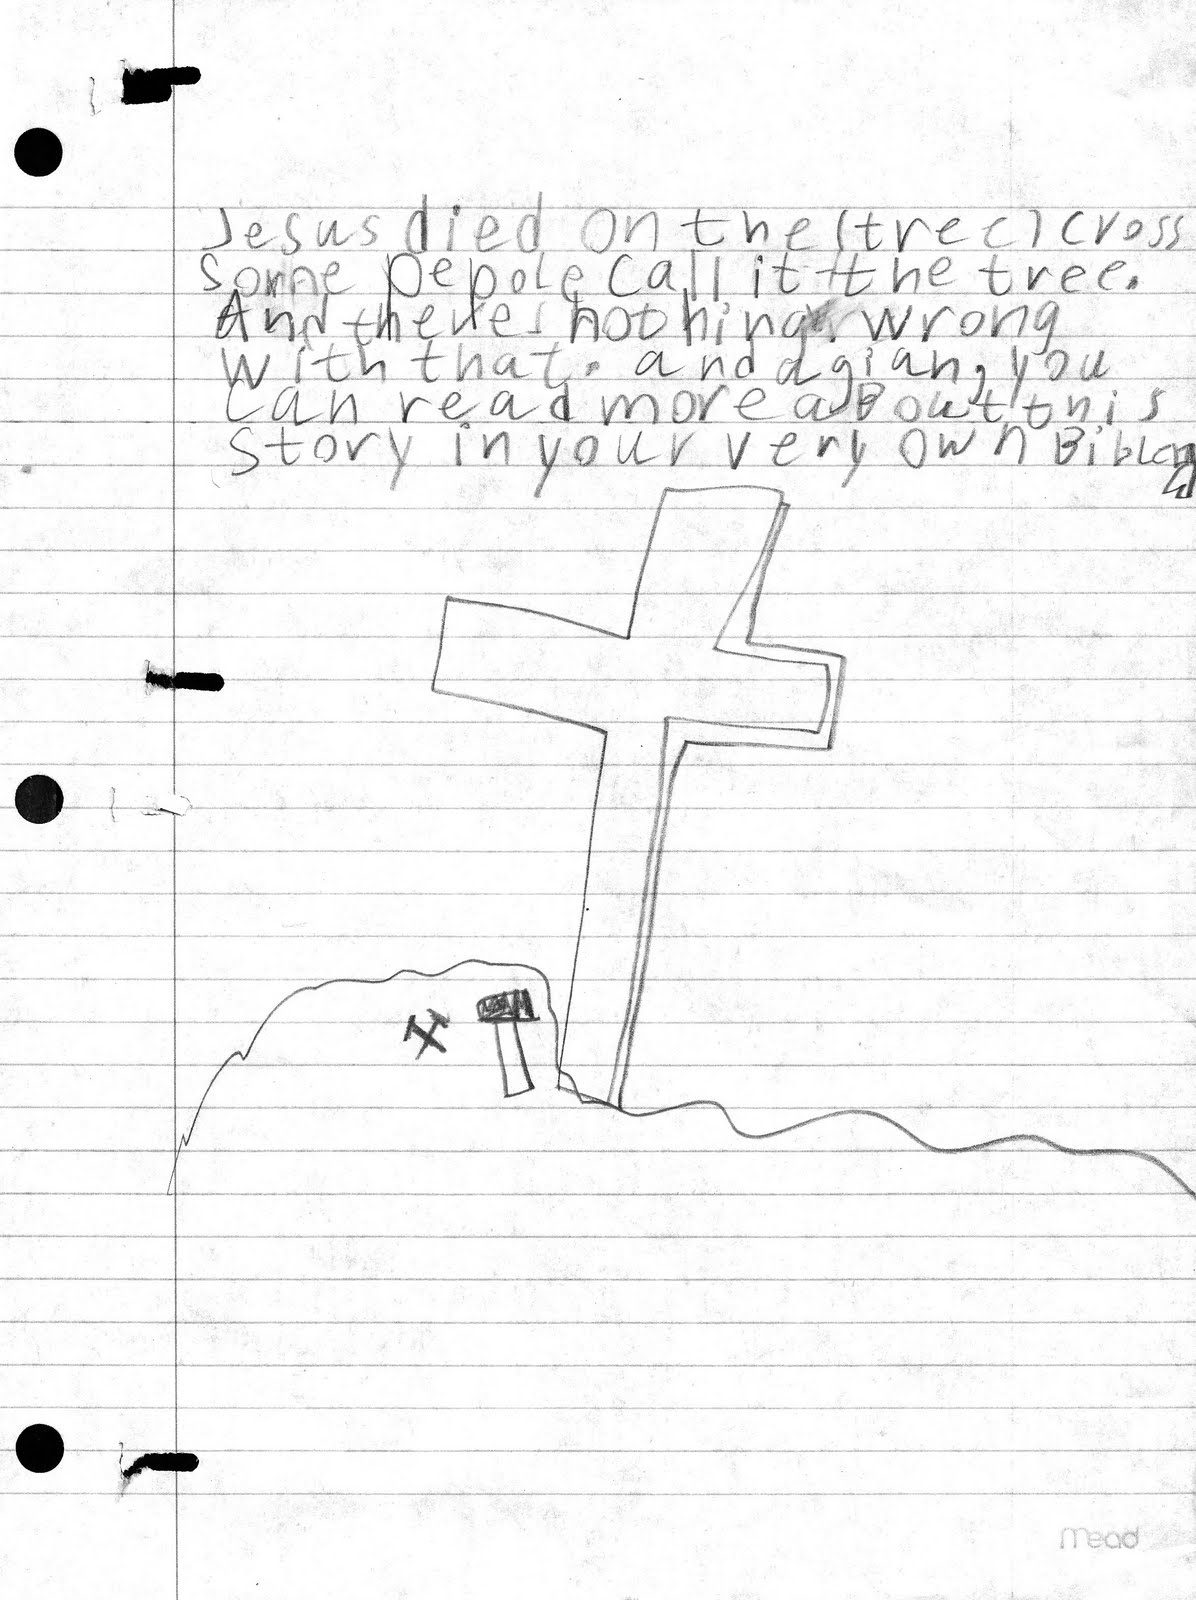 Jesus died on the (tree) cross
Some pepole call it the tree.
And theres nothing wrong
with that. and agian, you
can read more aBout this
story in your very own Bible
mead